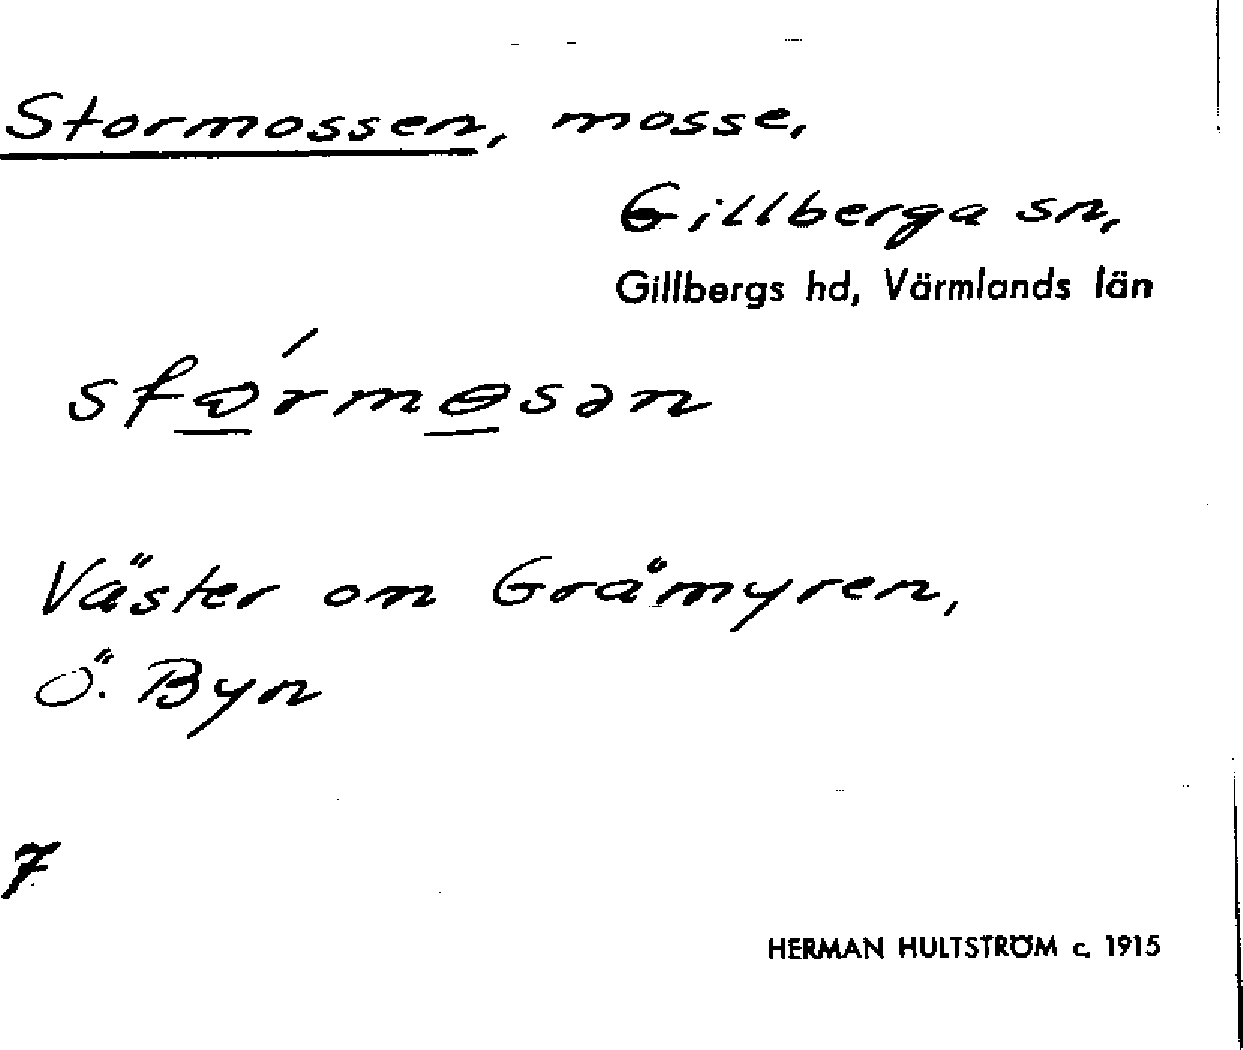 Stormossen, mosse,
Gillberga sn,
Gillbergs hd, Värmlands län
Väster om Gråmyren,
Ö. Byn
7
HERMAN HULTSTRÖM c. 1915